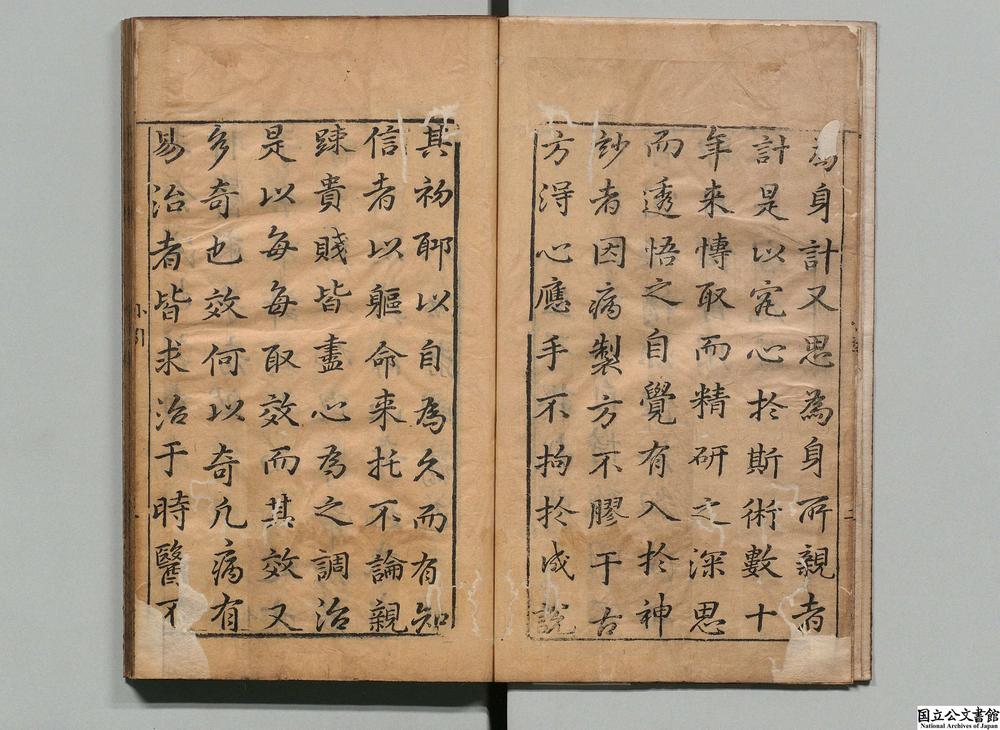 為身計又思為身所親者
計是以究心於斯術數十
年来慱取而精研之深思
而透悟之自覺有入於神
妙者因病製方不膠于古
方淂心應手不拘於成說
其初耶以自為久而有知
信者以軀命来托不論親
踈貴賤皆盡心為之調治
是以每每取效而其效又
多奇也效何以奇凢病有
易治者皆求治于時醫不
小引
二
国立公文書館
National Archives of Japan